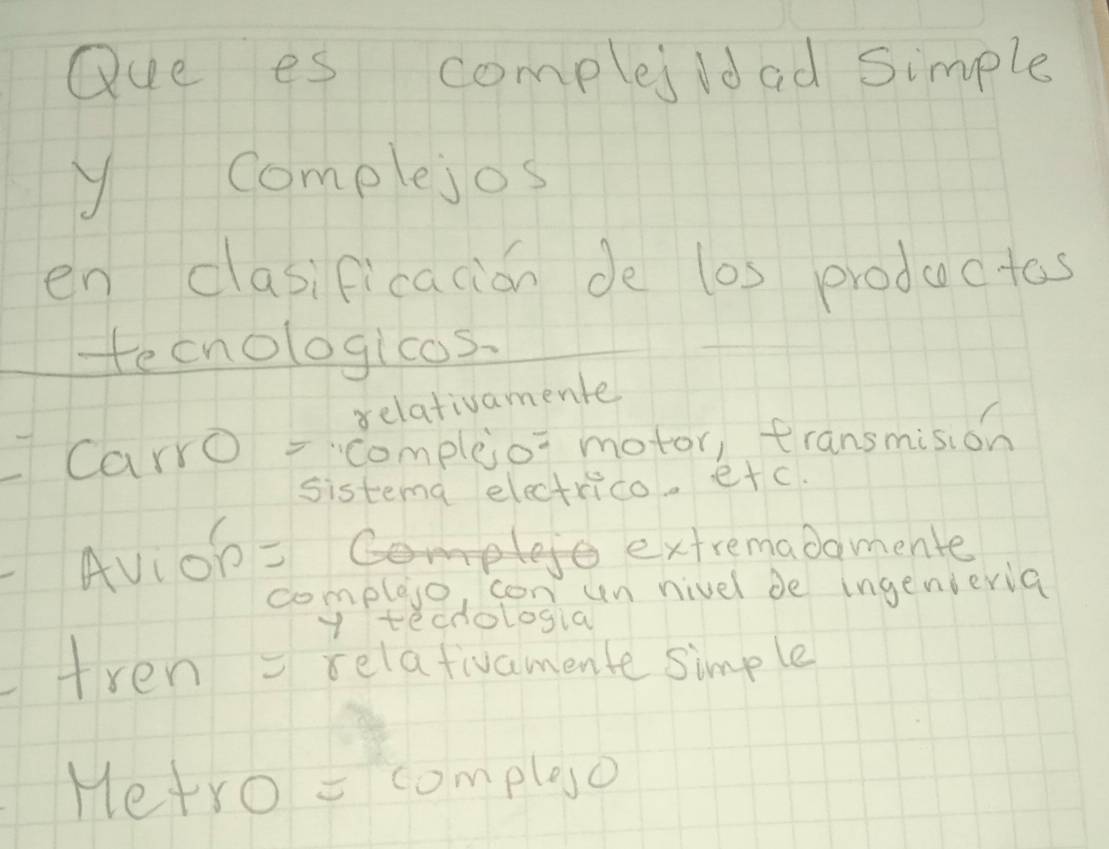 Que es complejidad simple
y complejos
en clasificación de los productos
tecnologicos.
relativamente
- Carro = complejo = motor, transmisión
sistema electrico. etc.
- Avión = Complejo extremadamente
complejo, con un nivel de ingenieria
y tecnologia
- tren = relativamente simple
- Metro = complejo